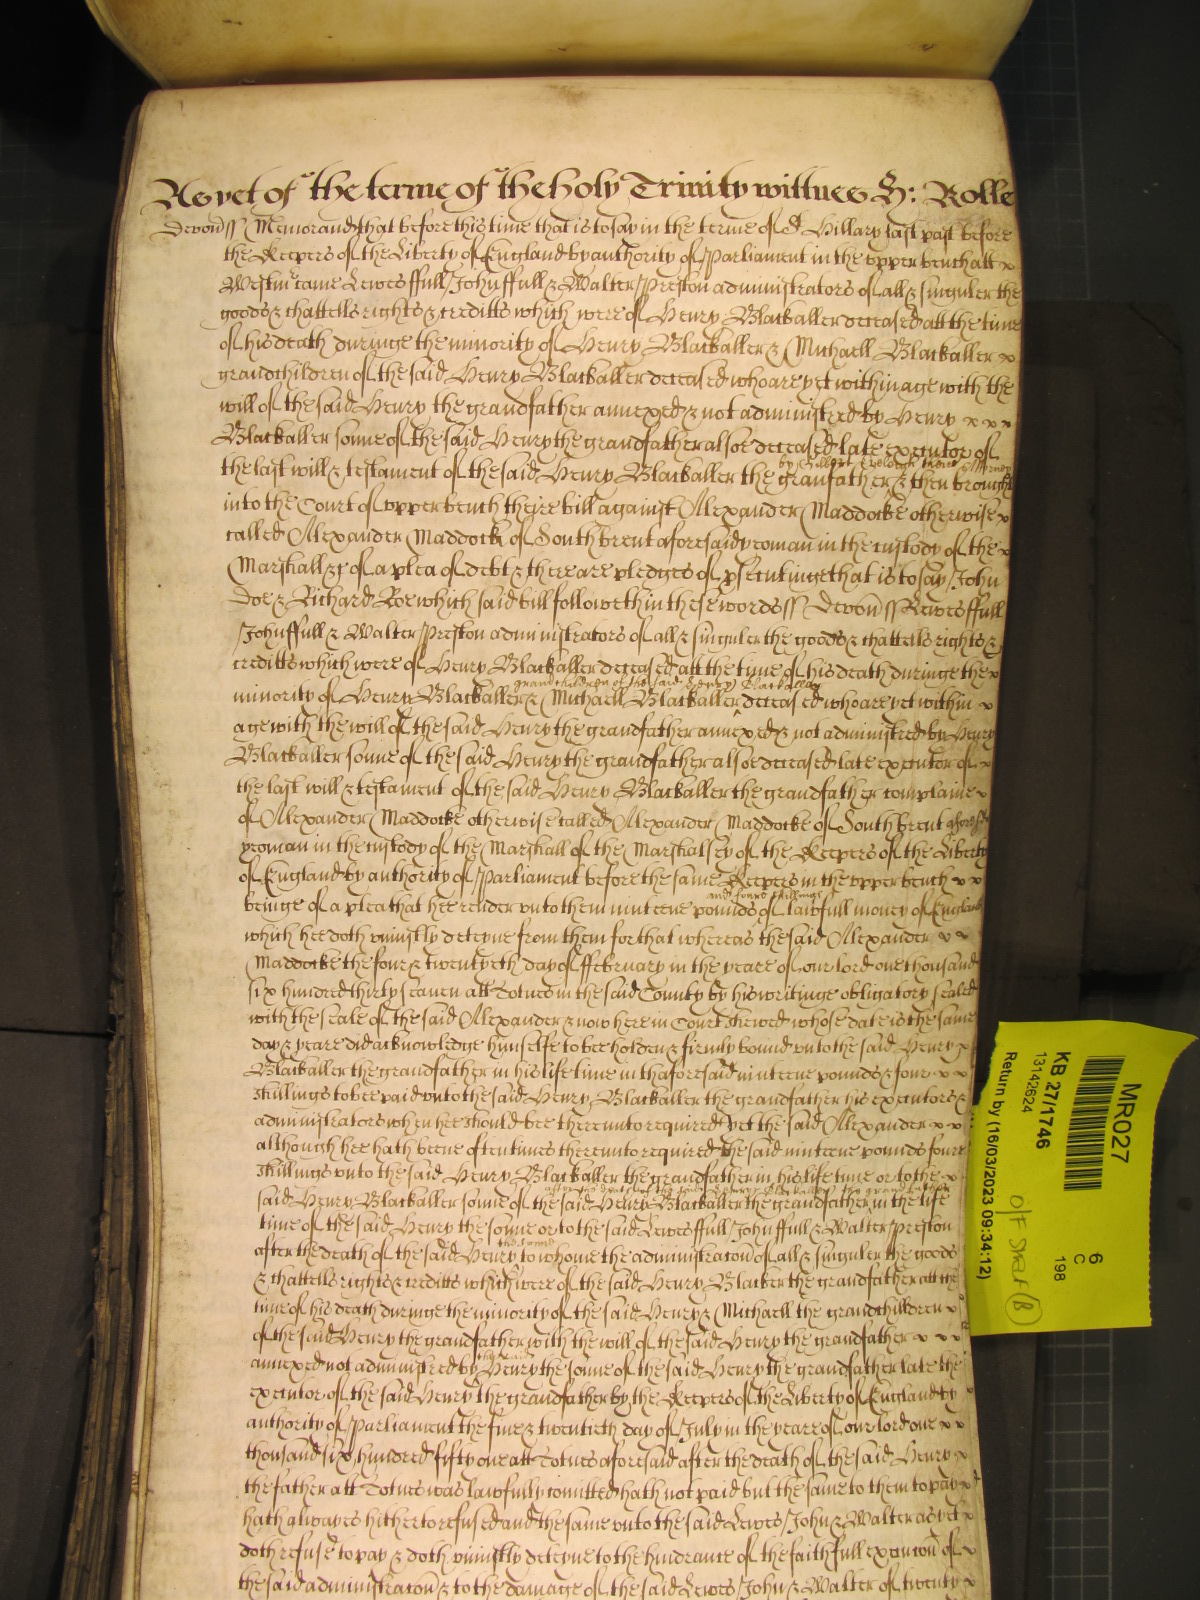 As yet of the terme of the holy Trinity wittnes H: Rolle
Devon ss Memorand that before this time that is to say in the terme of St Hillary last past before
the Keepers of the Liberty of England by authority of Parliament in the upper bench att x
Westmr came Lewes ffull John ffull & Walter Preston administrators of all & singuler the
goods & chattells rights & creditts which were of Henry Blackaller deceased att the time
of his death duringe the minority of Henry Blackaller & Michaell Blackaller x
grandchildren of the said Henry Blackaller deceased who are yet within age with the
will of the said Henry the grandfather annexed & not administred by Henry x x x
Blackaller sonne of the said Henry the grandfather alsoe deceased late executor of
by Gilbert Eveleigh their Attorney
the last will & testament of the said Henry Blackaller the granfather & then brought
into the Court of upper bench theire bill against Alexander Maddocke otherwise x
called Alexander Maddock of South brent aforesaid yeoman in the custody of the x
Marshall &c of a plea of debt & there are pledges of psecutinge that is to say John
Doe & Richard Roe which said bill followeth in these words ss Devon ss Lewes ffull
John ffull & Walter Preston administrators of all & singuler the goods & chattells rights &
creditts which were of Henry Blackaller deceased att the time of his death duringe the x
grandchildren of the said Henry Blackaller
minority of Henry Blackaller & Michaell Blackaller deceased who are yet within x
age with the will of the said Henry the grandfather annexed & not administred by Henry
Blackaller sonne of the said Henry the grandfather alsoe deceased late executor of x
the last will & testament of the said Henry Blackaller the grandfather complaine x
of Alexander Maddocke otherwise called Alexander Maddocke of South brent aforesd
yeoman in the custody of the Marshall of the Marshalsey of the Keepers of the Liberty
of England by authority of Parliament before the same Keepers in the upper bench x x
and foure shillings
beinge of a plea that hee render unto them ninteene pounds of lawfull money of England
which hee doth uniustly deteyne from them for that whereas the said Alexander x x
Maddocke the four & twentyeth day of ffebruary in the yeare of our lord one thousand
six hundred thirty seaven att Totnes in the said County by his writinge obligatory sealed
with the seale of the said Alexander & now here in Court shewed whose date is the same
day & yeare did acknowledge himselfe to bee holden & firmly bound unto the said Henry x
Blackaller the grandfather in his life time in thaforesaid ninteene pounds & four x x
shillings to bee paid unto the said Henry Blackaller the grandfather his executors &
administrators when hee should bee thereunto required yet the said Alexander x x
although hee hath beene oftentimes thereunto required the said ninteene pounds foure
shillings unto the said Henry Blackaller the grandfather in his life time or to the x
after the death of the said Henry Blackaller the grandfather
said Henry Blackaller sonne of the said Henry Blackaller the grandfather in the life
time of the said Henry the sonne or to the said Lewes ffull John ffull & Walter Preston
the sonne
after the death of the said Henry to whome the administracon of all & singuler the goods
& chattells rights & creditts which were of the said Henry Blacker the grandfather att the
time of his death duringe the minority of the said Henry & Michaell the grandchilldren x
of the said Henry the grandfather with the will of the said Henry the grandfather x x x
annexed not administred by Henry the sonne of the said Henry the grandfather late the
executor of the said Henry the grandfather by the Keepers of the Liberty of England by x
authority of Parliament the five & twentieth day of July in the yeare of our lord one x x
thousand six hundred fifty one att Totnes aforesaid after the death of the said Henry x
the father att Totnes was lawfully comitted hath not paid but the same to them to pay x
hath alwayes hitherto refused and the same unto the said Lewes John & Walter as yet x
doth refuse to pay & doth uniustly deteyne to the hindrance of the faithfull execucon of x
the said administracon & to the damage of the said Lewes John & Walter of twenty x
MR027
KB 27/1746
13142624
Return by (16/03/2023 09:34:12)
6
C
198